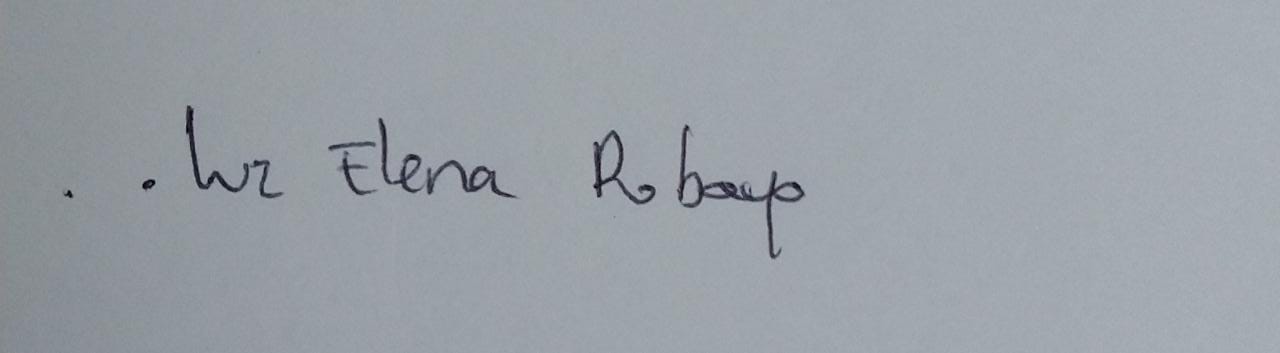 . . Luz Elena Robayo